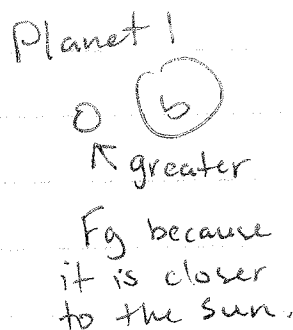 Planet 1
b
greater
Fg because
it is closer
to the sun.